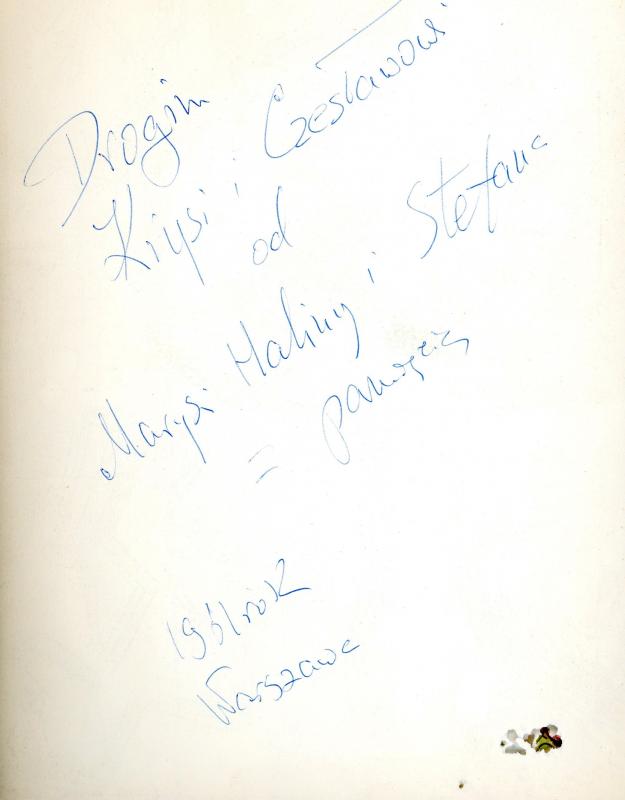 Drogim
Krysi i Czesławowi
od
Marysi Haliny i Stefana
z pamięcią
1961 rok
Warszawa